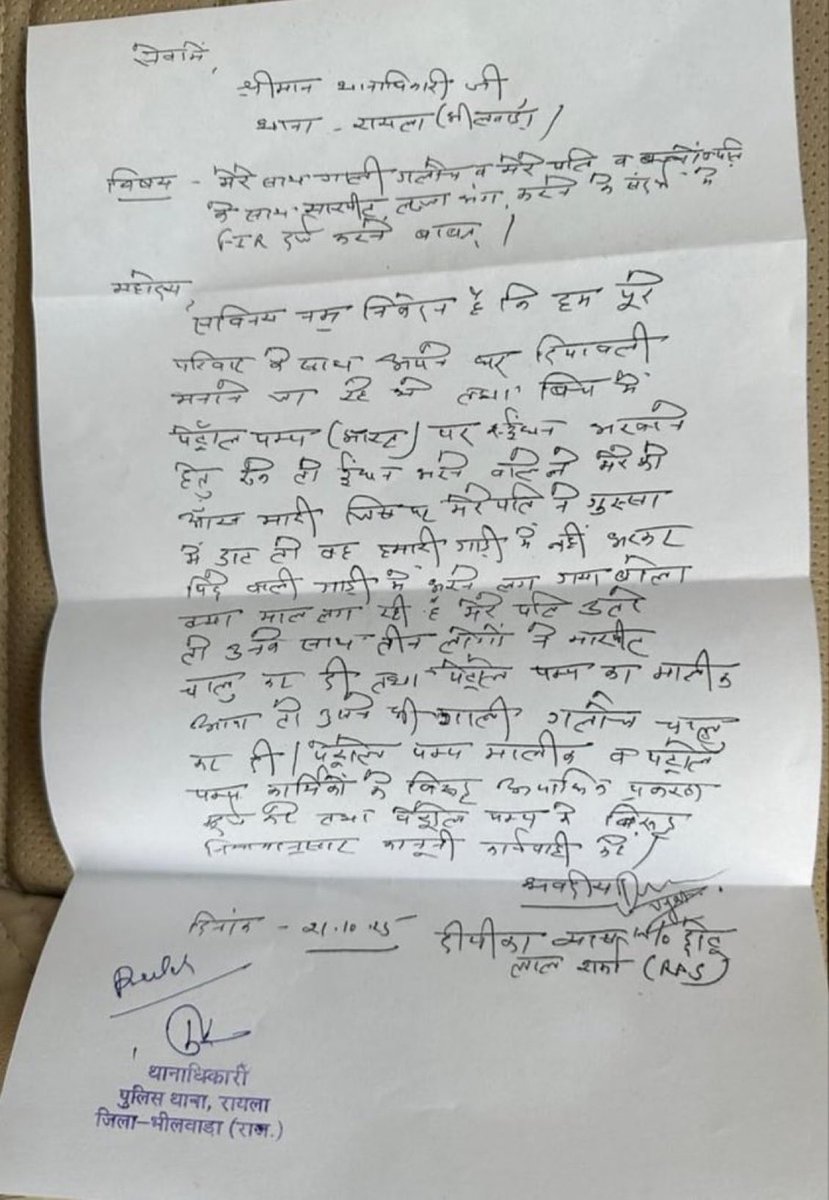 सेवामें,
श्रीमान थानाधिकारी जी
थाना - रायला (भीलवाडा) /
विषय - मेरे साथ गाली गलोच व मेरे पति व
के साथ मारपीट, लज्जा भंग, करने के संदर्भ में
FIR दर्ज करने बाबत् /
महोदय,
सविनय नम्र निवेदन है कि हम पूरे
परिवार के साथ अपने घर दिपावली
मनाने जा रहे थे तथा बिच में
पेट्रोल पम्प (भारत) पर ईंधन भरवाने
हेतु रुके तो ईंधन भरने वाले ने मेरे को
आँख मारी जिस पर मेरे पति ने गुस्सा
में डाट तो वह हमारी गाड़ी में नहीं भरकर
पिछे वाली गाडी में भरने लग गया बोला
क्या माल लग रही है मेरे पति उतरे
तो उनके साथ तीन लोगों ने मारपीट
चालु कर दी तथा पेट्रोल पम्प का मालीक
आया तो उसने भी गाली गलोच चालु
कर दी / पेट्रोल पम्प मालीक व पेट्रोल
पम्प कार्मिकों के विरूद्ध अपराधिक प्रकरण
दर्ज करे तथा पेट्रोल पम्प के विरूद्ध
नियमानुसार कानूनी कार्यवाही करे /
भवदीया
दिनांक - 21.10.25
दीपीका व्यास w/o छोटू
लाल शर्मा (RAS)
थानाधिकारी
पुलिस थाना, रायला
जिला-भीलवाडा (राज.)